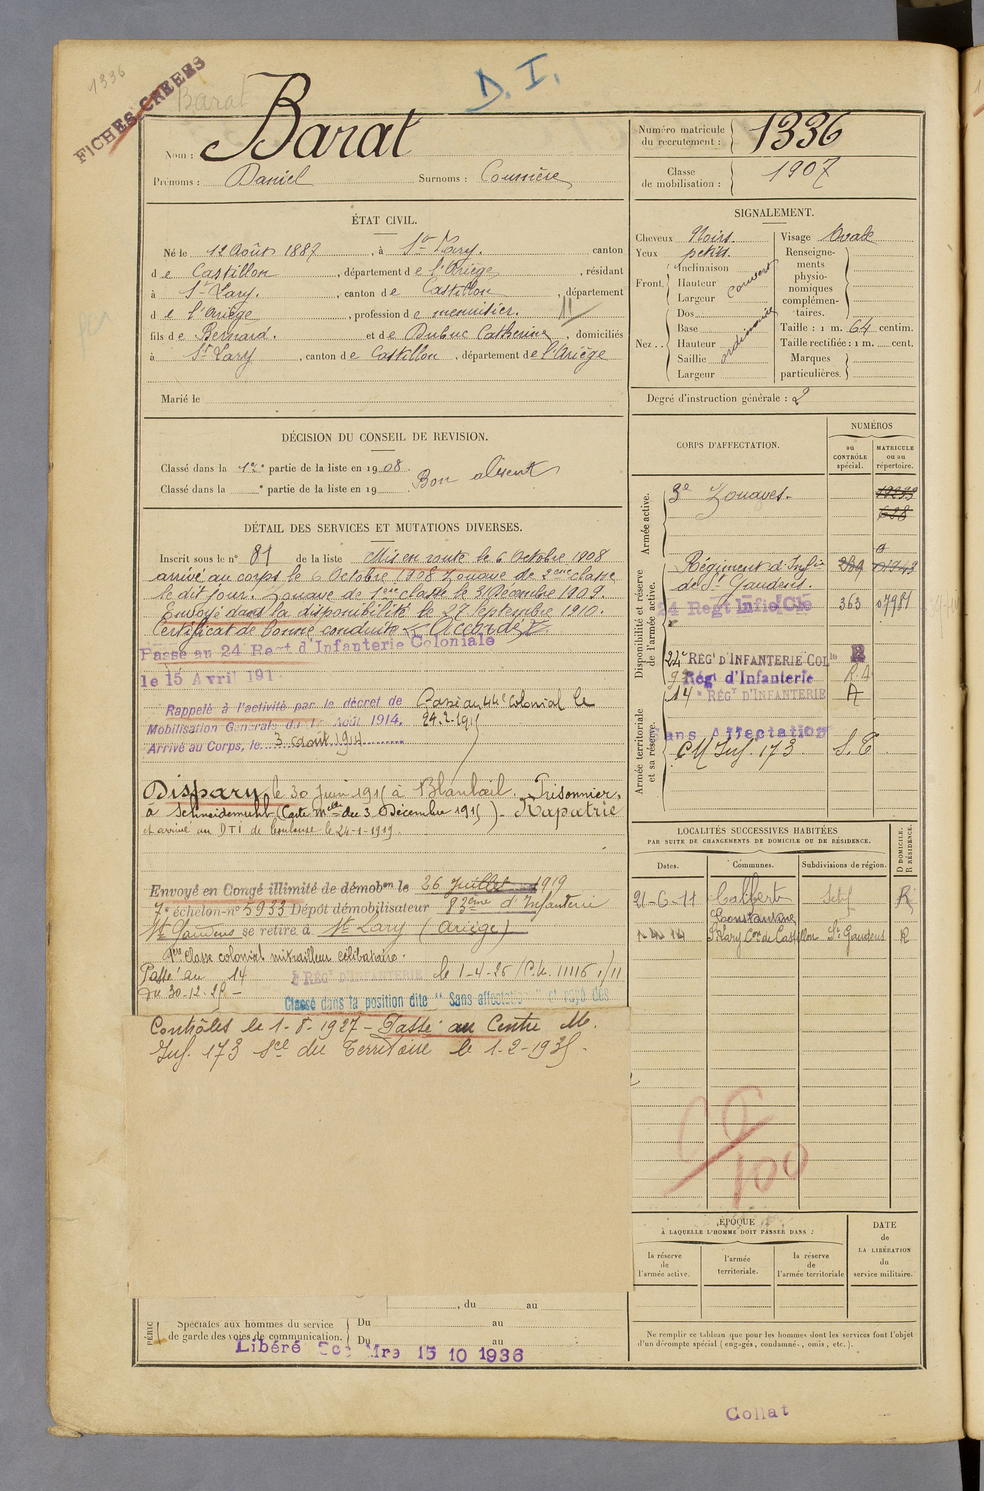 1336
FICHES CREEES
Barat
D. I.
Nom : Barat
Prénoms : Daniel Surnoms : Courrière
Numéro matricule du recrutement : 1336
Classe de mobilisation : 1907
ÉTAT CIVIL.
Né le 12 Août 1887, à St Lary. canton
de Castillon, département de l'Ariège, résidant
à St Lary, canton de Castillon, département
de l'Ariège, profession de menuisier.
fils de Bernard. et de Dubuc Catherine, domiciliés
à St Lary, canton de Castillon, département de l'Ariège
Marié le
SIGNALEMENT.
Cheveux Noirs.
Yeux petits.
Front. Inclinaison
Hauteur
Largeur
couvert
Nez .. Dos
Base
Hauteur
Saillie
Largeur
ordinaire
Visage Ovale
Renseignements physionomiques complémentaires.
Taille : 1 m. 64 centim.
Taille rectifiée : 1 m. cent.
Marques particulières.
Degré d'instruction générale : 2
DÉCISION DU CONSEIL DE REVISION.
Classé dans la 1re partie de la liste en 1908.
Bon absent
Classé dans la e partie de la liste en 19
DÉTAIL DES SERVICES ET MUTATIONS DIVERSES.
Inscrit sous le n° 81 de la liste Mis en route le 6 Octobre 1908
arrivé au corps le 6 Octobre 1908 Zouave de 2ème classe
le dit jour. Zouave de 1ère classe le 3 Décembre 1909.
Envoyé dans la disponibilité le 27 Septembre 1910.
Certificat de bonne conduite "Accordé".
Passé au 24 Regt d'Infanterie Coloniale
le 15 Avril 191
Rappelé à l'activité par le décret de
Mobilisation Générale du 1er Août 1914.
Arrivé au Corps, le 3 août 1914
Passé au 44e Colonial le
24.2.1915
Disparu le 30 Juin 1915 à Blanbail. Prisonnier
à Schneidemuhl (Carte Melle du 3 Décembre 1915). Rapatrié
et arrivé au DTI de Toulouse le 24-1-1919.
Envoyé en Congé illimité de démobon le 26 Juillet 1919
7e échelon-n° 5933 Dépôt démobilisateur 83ème d'Infanterie
St Gaudens se retire à St Lary (Ariège)
1ère classe colonial mitrailleur célibataire.
Passé au 14 e RÉGt D'INFANTERIE le 1-4-26
du 30-12-25 -
Classé dans la position dite "Sans affectation" et rayé des
Contrôles le 1-8-1927 - Passé au Centre M.
Inf. 173 Sce du Territoire le 1-2-1935.
CORPS D'AFFECTATION.
NUMÉROS
au CONTRÔLE spécial.
MATRICULE ou au répertoire.
Armée active.
3e Zouaves.
Disponibilité et réserve de l'armée active.
Régiment d'Infie
de St Gaudens.
24 Regt Infie Cle 363 07981
24e RÉGt D'INFANTERIE COLle R
Régt d'Infanterie R.A
14e RÉGt D'INFANTERIE A
Armée territoriale et sa réserve.
Sans Affectation
CM Inf. 173 S.T
LOCALITÉS SUCCESSIVES HABITÉES
PAR SUITE DE CHANGEMENTS DE DOMICILE OU DE RÉSIDENCE.
Dates. Communes. Subdivisions de région. D DOMICILE. R RÉSIDENCE.
21-6-11 Colbert Sétif R
Constantine
St Lary Con de Castillon St Gaudens R
100
ÉPOQUE
À LAQUELLE L'HOMME DOIT PASSER DANS :
la réserve de l'armée active.
l'armée territoriale.
la réserve de l'armée territoriale
DATE de LA LIBÉRATION du service militaire.
Ne remplir ce tableau que pour les hommes dont les services font l'objet
d'un décompte spécial (engagés, condamnés, omis, etc.).
, du au
PÉRIO
Spéciales aux hommes du service
de garde des voies de communication.
Du au
Du au
Libéré Sce Mre 15 10 1936
Collat